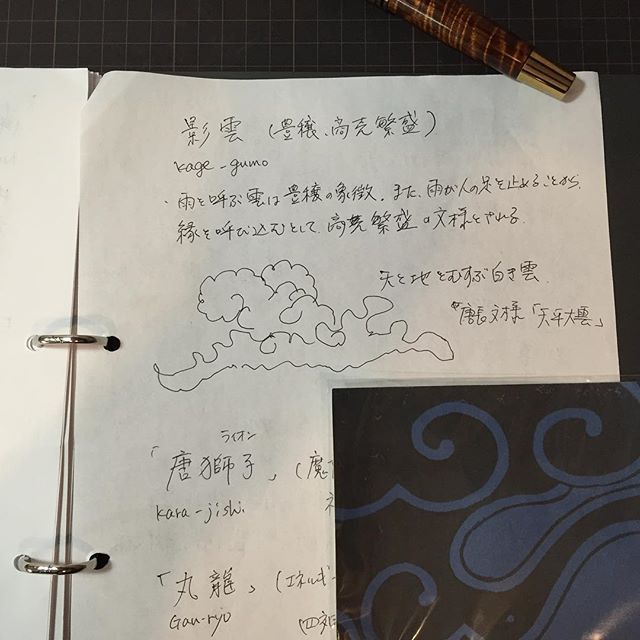 影雲 (豊穣、商売繁盛)
kage-gumo
・雨を呼ぶ雲は豊穣の象徴。また、雨が人の足を止めることから、
縁を呼び込むとして、商売繁盛の文様とされる。
天と地をむすぶ白き雲
唐長文様「天平大雲」
ライオン
「唐獅子」(魔
kara-jishi
「丸龍」(エネルギー
Gan-ryo